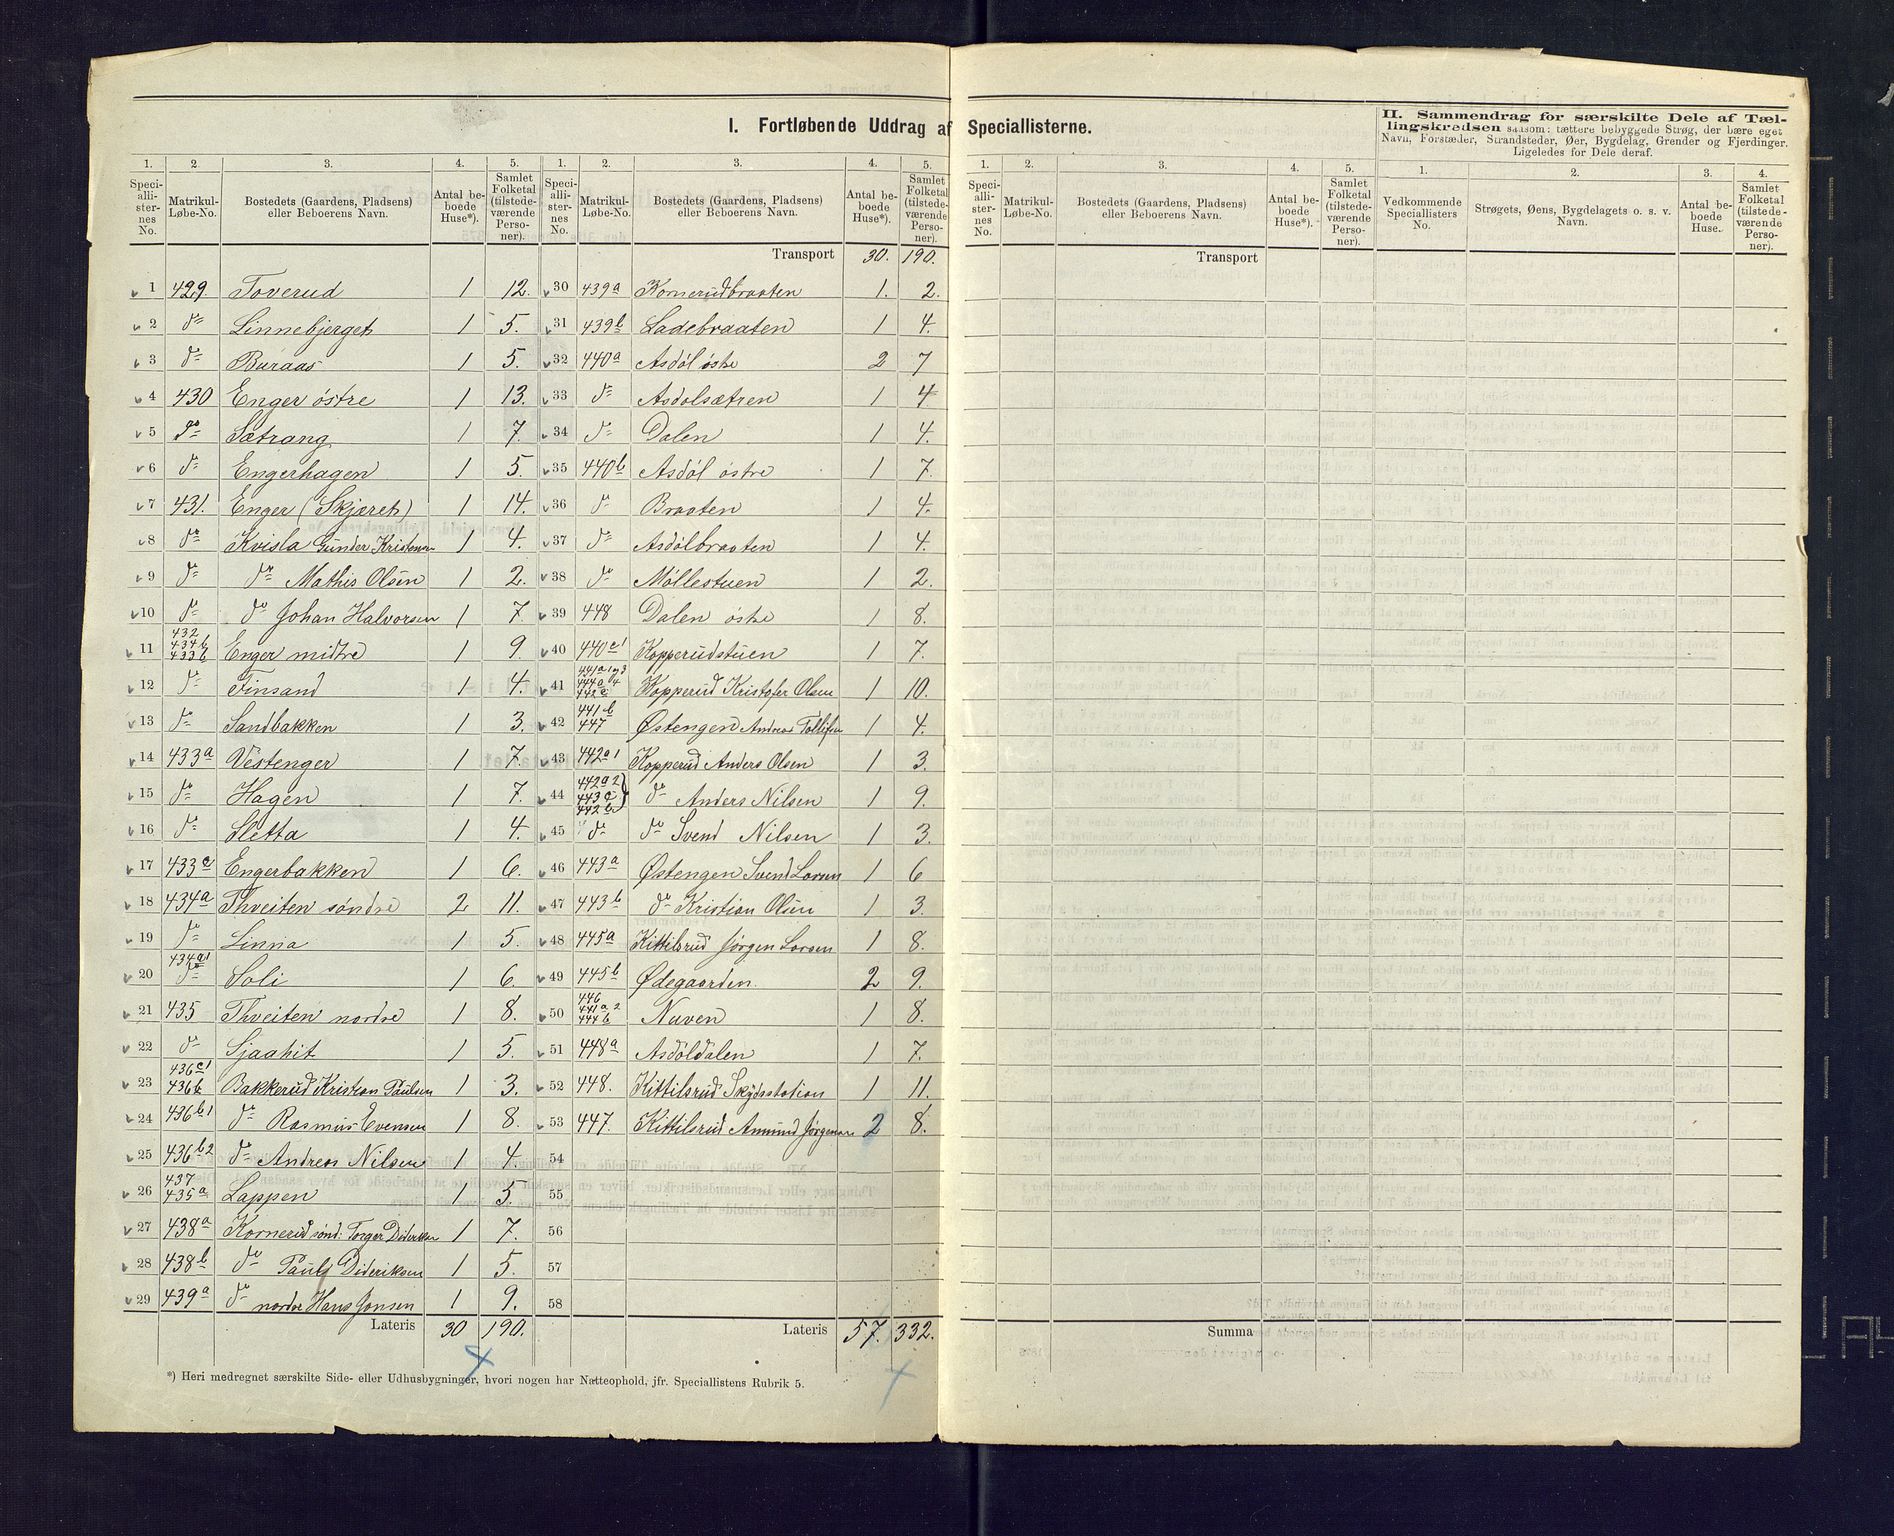 I. Fortløbende Uddrag af Speciallisterne.
II. Sammendrag for særskilte Dele af Tællingskredsen saasom: tættere bebyggede Strøg, der bære eget Navn, Forstæder, Strandsteder, Øer, Bygdelag, Grender og Fjerdinger. Ligeledes for Dele deraf.
1. 2. 3. 4. 5. 1. 2. 3. 4. 5. 1. 2. 3. 4. 5. 1. 2. 3. 4.
Speciallisternes No. Matrikul-Løbe-No. Bostedets (Gaardens, Pladsens) eller Beboerens Navn. Antal beboede Huse*). Samlet Folketal (tilstedeværende Personer).
Speciallisternes No. Matrikul-Løbe-No. Bostedets (Gaardens, Pladsens) eller Beboerens Navn. Antal beboede Huse*). Samlet Folketal (tilstedeværende Personer).
Speciallisternes No. Matrikul-Løbe-No. Bostedets (Gaardens, Pladsens) eller Beboerens Navn. Antal beboede Huse*). Samlet Folketal (tilstedeværende Personer).
Vedkommende Speciallisters No. Strøgets, Øens, Bygdelagets o. s. v. Navn. Antal beboede Huse. Samlet Folketal (tilstedeværende Personer).
1 429. Toverud 1 12.
2 do Linnebjerget 1 5.
3 do Buraas 1 5.
4 430 Enger østre 1 13.
5 do Sætrang 1 7.
6 do Engerhagen 1 5.
7 431. Enger (Skjæret) 1 14.
8 do Kvisla Gunder Kristensen 1 4.
9 do do Mathis Olsen 1 2.
10 do do Johan Halvorsen 1 7.
11 432 434b 433b Enger midtre 1 9.
12 do Finsand 1 4.
13 do Sandbakken 1 3.
14 433a Vestenger 1 7.
15 do Hagen 1 7.
16 do Sletta 1 4.
17 433c Engerbakken 1 6.
18 434a Thveiten søndre 2 11.
19 do Linna 1 5.
20 434a1 do Soli 1 6.
21 435 Thveiten nordre 1 8.
22 do Sjaahit 1 5.
23 436c1 436b Bakkerud Kristian Paulsen 1 3.
24 436b1 do Rasmus Evensen 1 8.
25 436b2 do Andreas Nilsen 1 4.
26 437 435a Lappen 1 5.
27 438a Kornerud sønd: Torger Dideriksen 1 7.
28 438b do Paul Dideriksen 1 5.
29 439a do nordre Hans Jonsen 1 9.
Lateris 30 190.
Transport 30. 190.
30 439a Kornerudbraaten 1. 2.
31 439b Ladebraaten 1 4.
32 440a Asdøl østre 2 7
33 do Asdølsætren 1 4
34 do Dalen 1 4.
35 440b Asdøl østre 1 7.
36 do Braaten 1 4.
37 do Asdølbraaten 1 4.
38 do Møllestuen 1 2.
39 448 Dalen østre 1 8.
40 440c1 Kopperudstuen 1 7.
41 Kopperud Kristofer Olsen 1 10.
42 441b 447 Østengen Andreas Tollefsen 1 4.
43 442a1 Kopperud Anders Olsen 1 3.
44 442a2 443c 442b do Anders Nilsen 1 9.
45 do do Svend Nilsen 1 3.
46 443a Østengen Svend Larsen 1 6
47 443b do Kristian Olsen 1 3.
48 445a Kittilsrud Jørgen Larsen 1 8.
49 445b Ødegaarden. 2 9.
50 446 441a2 444b Nuven 1 8.
51 448a Asdøldalen 1 7.
52 448. Kittilsrud Skydsstation 1 11.
53 447. Kittilsrud Amund Jørgensen 2 8.
54
55
56
57
58
Lateris 57. 332.
Transport
Summa
*) Heri medregnet særskilte Side- eller Udhusbygninger, hvori nogen har Natteophold, jfr. Speciallistens Rubrik 5.